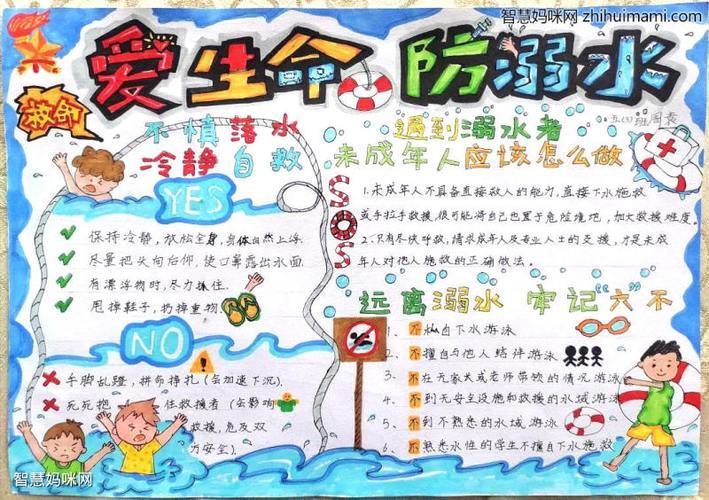 智慧妈咪网 zhihuimami.com
爱生命 防溺水
救命
五(3)班
不慎落水
冷静自救
YES
保持冷静,放松全身,身体自然上浮.
尽量把头向后仰,使口鼻露出水面
有漂浮物时,尽力抓住.
甩掉鞋子,扔掉重物
NO
手脚乱蹬,拼命挣扎(会加速下沉).
死死抱住救援者(会影响
救援,危及双
方安全).
遇到溺水者
未成年人应该怎么做
SOS
1.未成年人不具备直接救人的能力,直接下水施救
或手拉手救援,很可能将自己也置于危险境地,加大救援难度.
2.只有尽快呼救,请求成年人及专业人士的支援,才是未成
年人对他人施救的正确做法.
远离溺水 牢记"六"不
1、不私自下水游泳
2、不擅自与他人结伴游泳
3、不在无家长或老师带领的情况游泳
4、不到无安全设施和救援的水域游泳
5、不到不熟悉的水域游泳
6、不熟悉水性的学生不擅自下水施救
智慧妈咪网